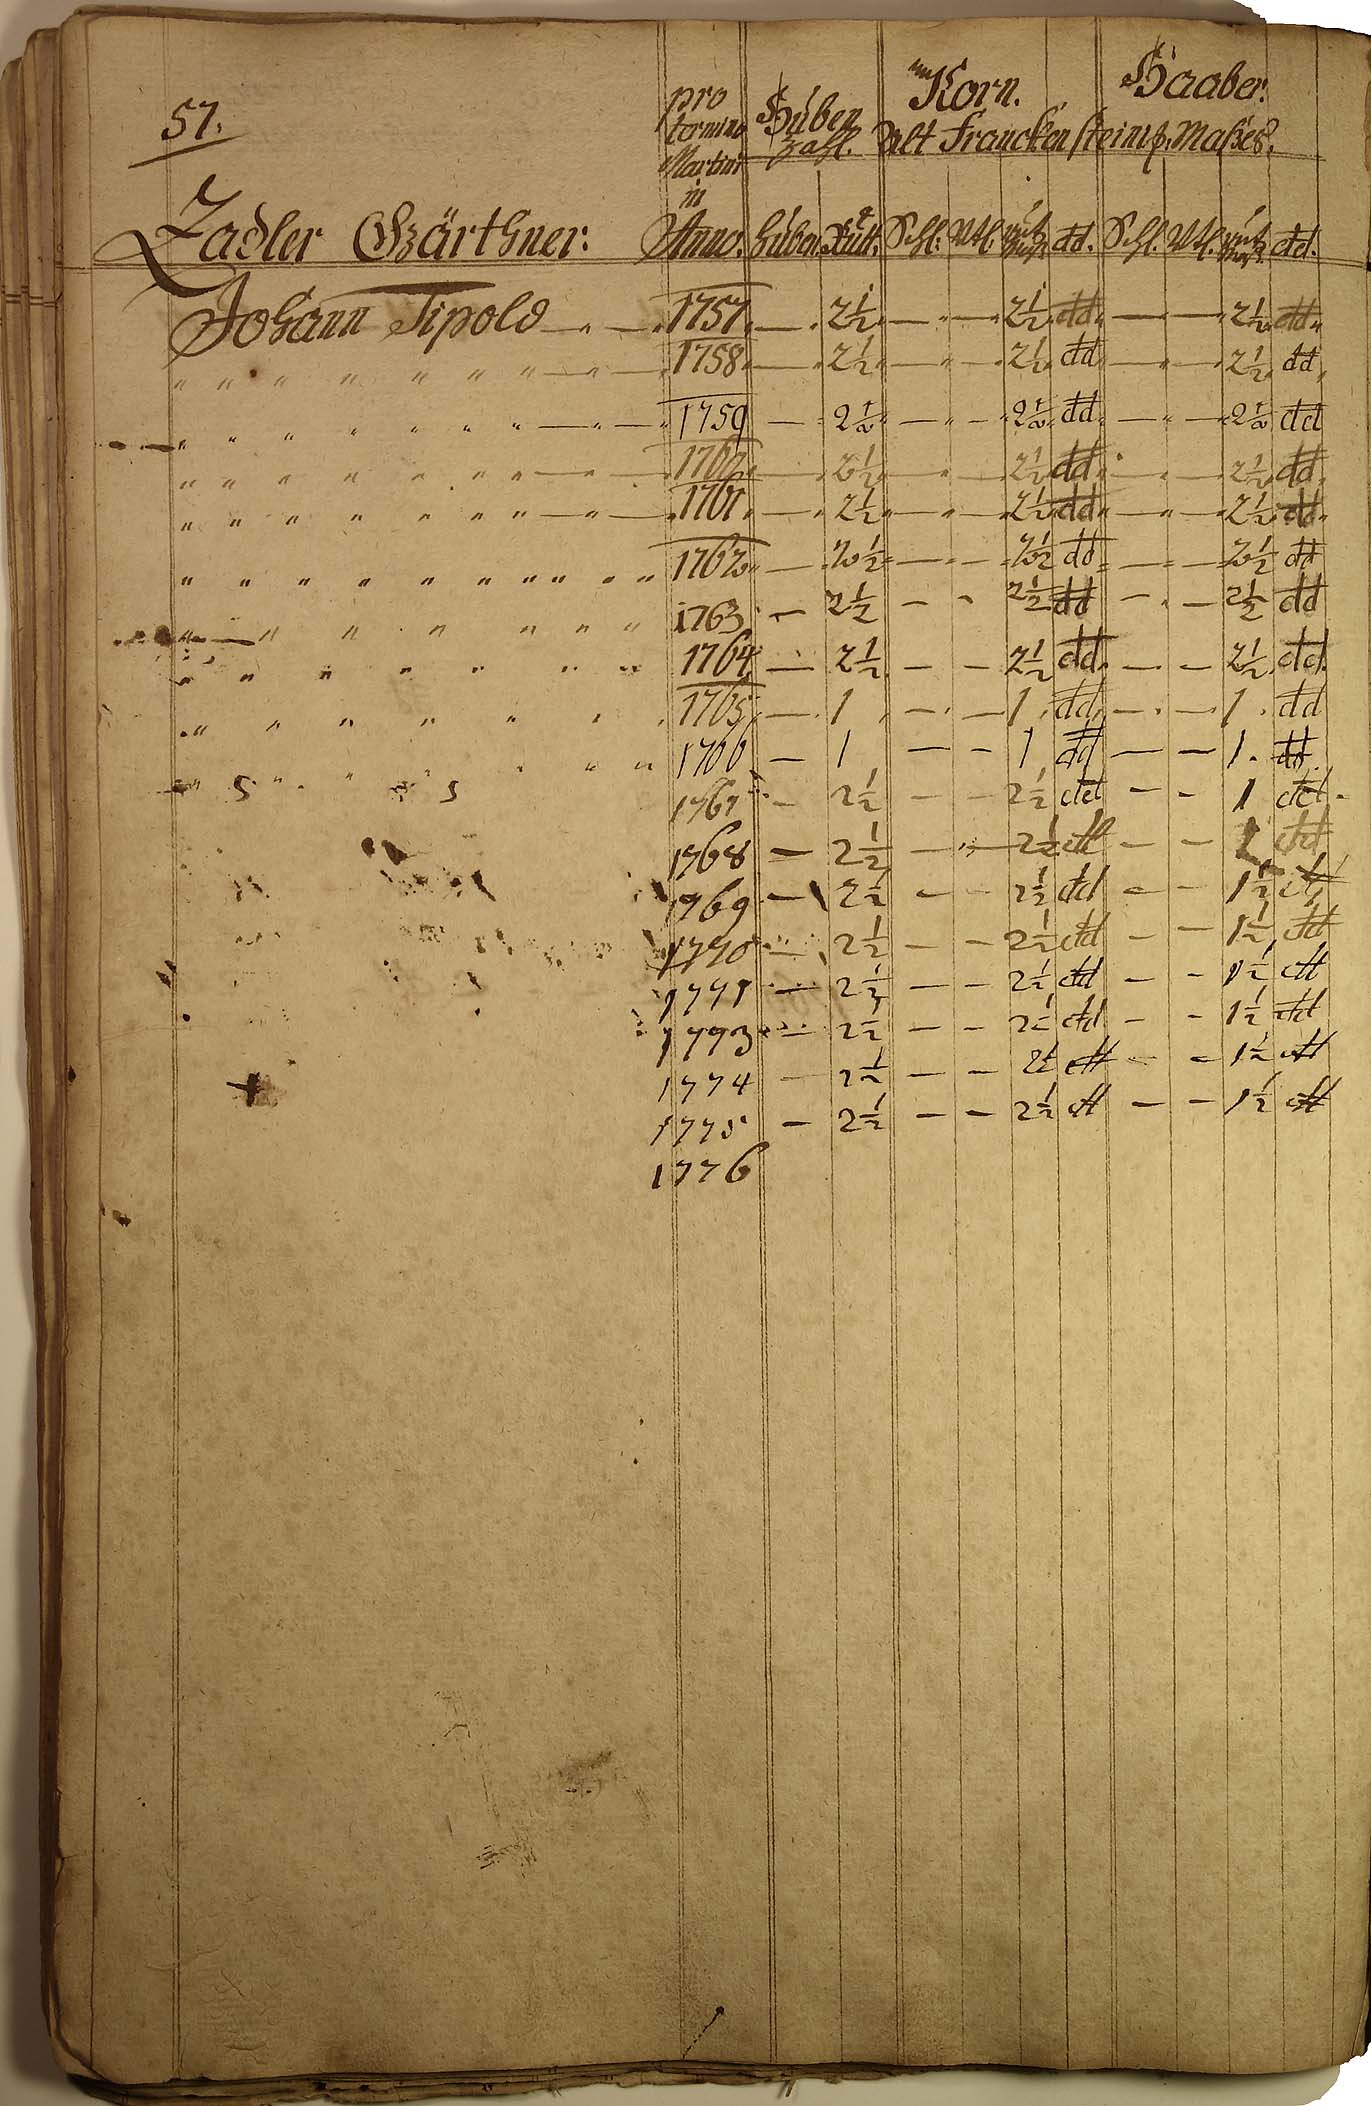 57.
pro termino Martini in Anno. Huben Zahl. Korn. Haaber.
Alt Franckensteinis. Maßes.
Zadler Gärthner: Huben. Rutt. Schl: Vtl. dd. Schl. Vtl. dd.
Johann Tipold — " — 1757. — 2½ — " — 2½ dd — — 2½ dd
" " " " " " " — " — 1758. — 2½ — " — 2½ dd — " — 2½ dd
" " " " " " " — " — 1759 — 2½ — " — 2½ dd — " — 2½ dd
" " " " " " " — " — 1760 — 2½ — " — 2½ dd — " — 2½ dd
" " " " " " " — " — 1761 — 2½ — " — 2½ dd — " — 2½ dd
" " " " " " " " " " " 1762 — 2½ — " — 2½ dd — " — 2½ dd
" — " " " " " " 1763 — 2½ — - 2½ dd — - — 2½ dd
" " " " " " " 1764 — 2½ — — 2½ dd — - — 2½ dd
" " " " " " 1765 — 1 — — 1 dd — - — 1. dd
" " " " " " 1766 — 1 — - 1 dd — — 1. dd
1767 - 2½ - - 2½ dd - - 1 dd
1768 — 2½ — " — 2½ dd - - 1 dd
1769 — 2½ - - 2½ dd - - 1½ dd
1770 — 2½ - - 2½ dd - - 1½ dd
1771 — 2½ - - 2½ dd - - 1½ dd
1773 — 2½ - - 2½ dd - - 1½ dd
1774 - 2½ - - 2½ dd - - 1½ dd
1775 - 2½ - - 2½ dd - - 1½ dd
1776